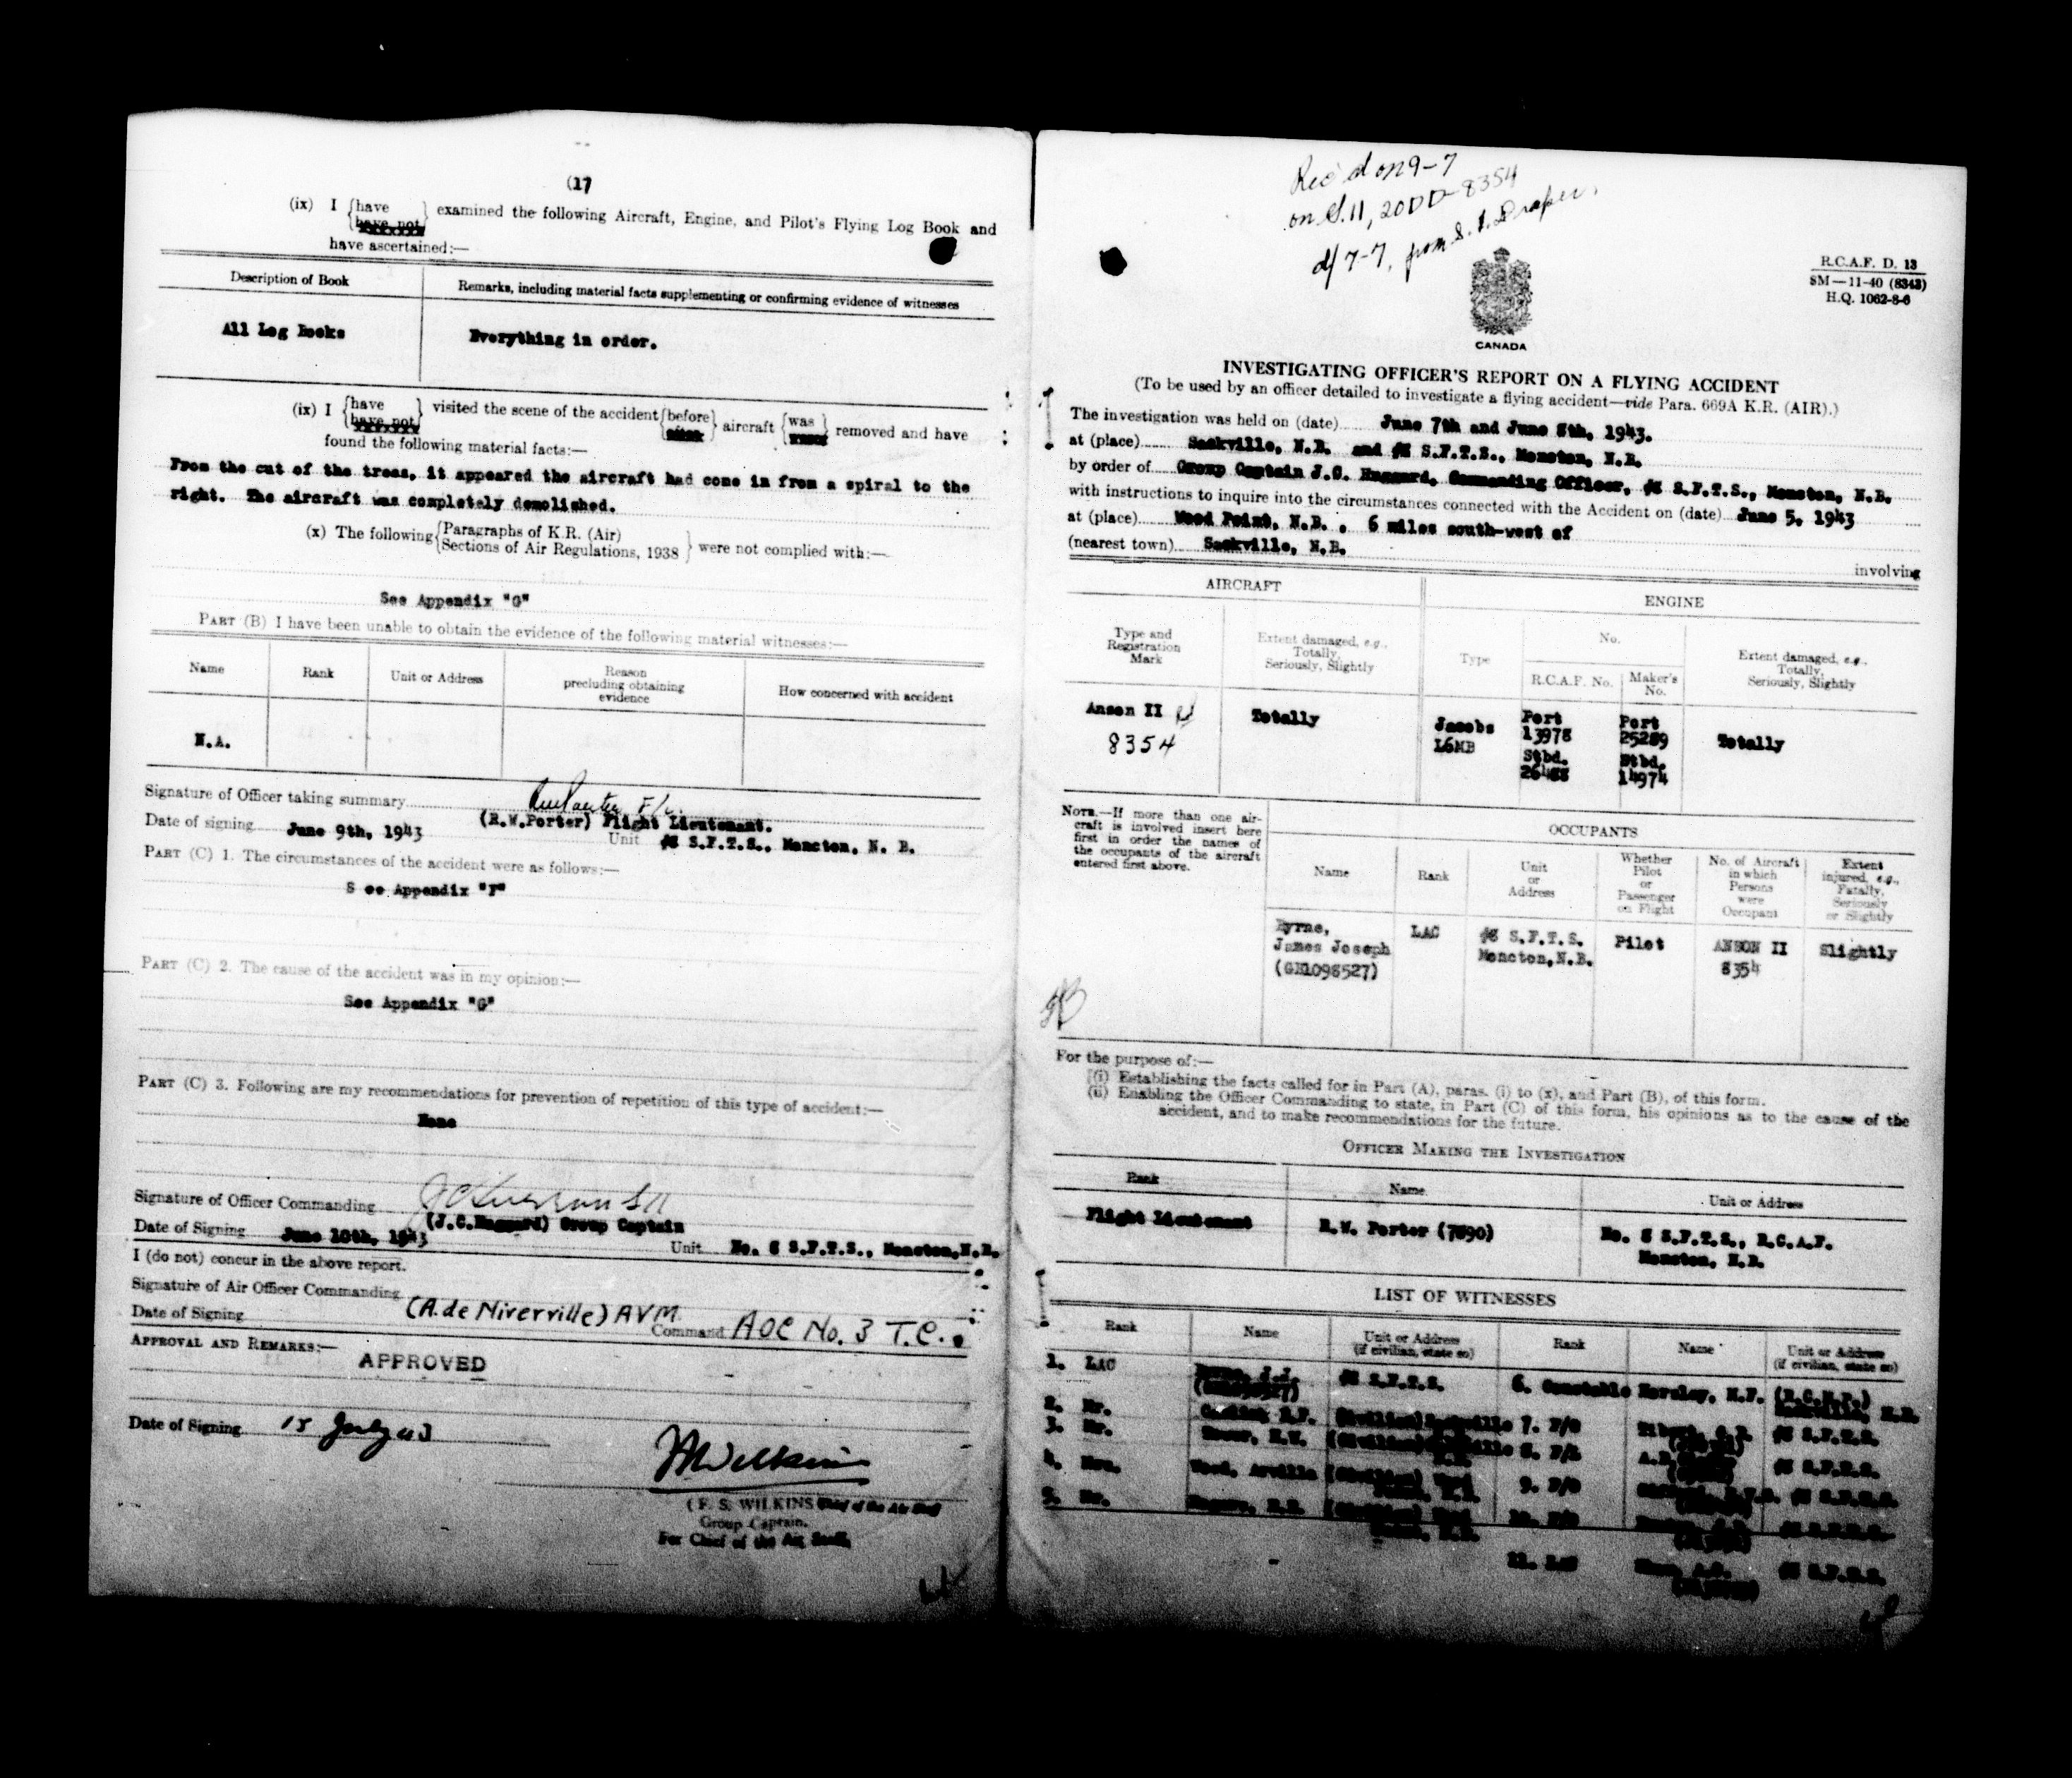 (17
(ix) I {have
have not} examined the following Aircraft, Engine, and Pilot's Flying Log Book and
have ascertained:—
Description of Book
Remarks, including material facts supplementing or confirming evidence of witnesses
All Log Books
Everything in order.
(ix) I {have
have not} visited the scene of the accident {before
after} aircraft {was
removed and have
found the following material facts:—
From the cut of the trees, it appeared the aircraft had come in from a spiral to the
right. The aircraft was completely demolished.
(x) The following {Paragraphs of K.R. (Air)
Sections of Air Regulations, 1938} were not complied with:—
See Appendix "G"
PART (B) I have been unable to obtain the evidence of the following material witnesses:—
Name
Rank
Unit or Address
Reason
precluding obtaining
evidence
How concerned with accident
N.A.
Signature of Officer taking summary
(R.W.Porter) Flight Lieutenant.
Date of signing June 9th, 1943
Unit #8 S.F.T.S., Moncton, N. B.
PART (C) 1. The circumstances of the accident were as follows:—
S ee Appendix "F"
PART (C) 2. The cause of the accident was in my opinion:—
See Appendix "G"
PART (C) 3. Following are my recommendations for prevention of repetition of this type of accident:—
None
Signature of Officer Commanding
(J.C.Huggard) Group Captain
Date of Signing June 10th, 1943
Unit No. 8 S.F.T.S., Moncton,N.B.
I (do not) concur in the above report.
Signature of Air Officer Commanding
(A. de Niverville) AVM
Date of Signing
Command AOC No. 3 T.C.
APPROVAL AND REMARKS:—
APPROVED
Date of Signing 15 July 43
(F. S. WILKINS) Chief of the Air Staff
Group Captain,
For Chief of the Air Staff,
Rec'd on 9-7
on S.11, 20DD-8354
d/ 7-7, from S. I. Draper.
R.C.A.F. D. 13
5M—11-40 (8343)
H.Q. 1062-8-6
CANADA
INVESTIGATING OFFICER'S REPORT ON A FLYING ACCIDENT
(To be used by an officer detailed to investigate a flying accident—vide Para. 669A K.R. (AIR).)
The investigation was held on (date) June 7th and June 8th, 1943.
at (place) Sackville, N.B. and #8 S.F.T.S., Moncton, N.B.
by order of Group Captain J.C. Huggard, Commanding Officer, #8 S.F.T.S., Moncton, N.B.
with instructions to inquire into the circumstances connected with the Accident on (date) June 5, 1943
at (place) Wood Point, N.B. , 6 miles south-west of
(nearest town) Sackville, N.B.
involving
AIRCRAFT
ENGINE
Type and
Registration
Mark
Extent damaged, e.g.,
Totally,
Seriously, Slightly
Type
No.
R.C.A.F. No.
Maker's
No.
Extent damaged, e.g.,
Totally,
Seriously, Slightly
Anson II
8354
Totally
Jacobs
L6MB
Port
13978
Stbd.
26488
Port
25289
Stbd.
14974
Totally
NOTE.—If more than one air-
craft is involved insert here
first in order the names of
the occupants of the aircraft
entered first above.
OCCUPANTS
Name
Rank
Unit
or
Address
Whether
Pilot
or
Passenger
on Flight
No. of Aircraft
in which
Persons
were
Occupant
Extent
injured, e.g.,
Fatally,
Seriously
or Slightly
Byrne,
James Joseph
(GB1098527)
LAC
#8 S.F.T.S.
Moncton,N.B.
Pilot
ANSON II
8354
Slightly
For the purpose of:—
(i) Establishing the facts called for in Part (A), paras. (i) to (x), and Part (B), of this form.
(ii) Enabling the Officer Commanding to state, in Part (C) of this form, his opinions as to the cause of the
accident, and to make recommendations for the future.
OFFICER MAKING THE INVESTIGATION
Rank
Name
Unit or Address
Flight Lieutenant
R.W. Porter (7890)
No. 8 S.F.T.S., R.C.A.F.
Moncton, N.B.
LIST OF WITNESSES
Rank
Name
Unit or Address
(if civilian, state so)
Rank
Name
Unit or Address
(if civilian, state so)
1. LAC
#8 S.F.T.S.
2. Mr.
3. Mr.
4. Mrs. Wood, Arvilla
5. Mr.
6. Constable Horsley, N.F. (R.C.M.P.)
7. F/O
#8 S.F.T.S.
8. F/L
#8 S.F.T.S.
9. F/O
#8 S.F.T.S.
#8 S.F.T.S.
11. LAC
#8 S.F.T.S.